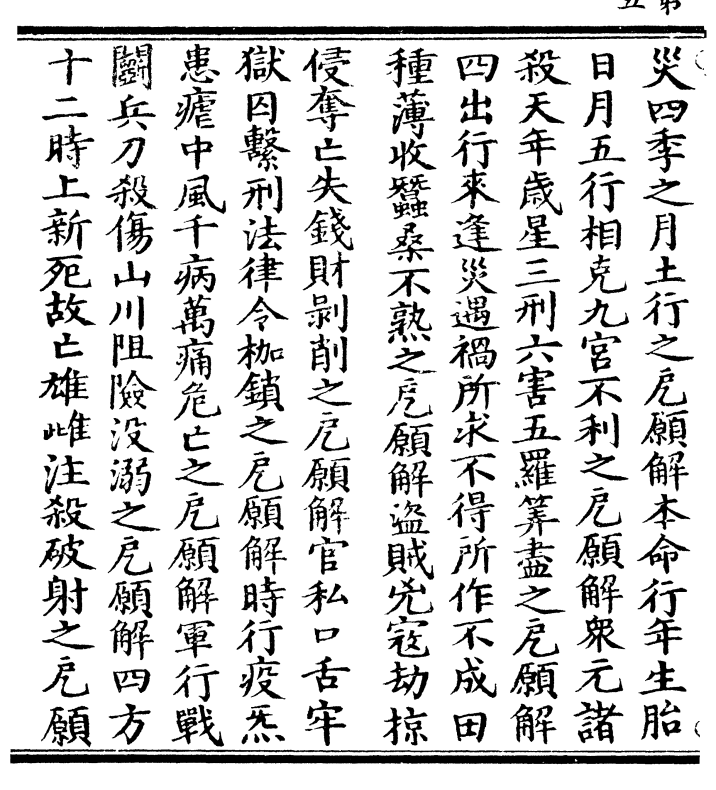 第五
災四季之月土行之戹願解本命行年生胎
日月五行相克九宮不利之戹願解衆元諸
殺天年歲星三刑六害五羅筭盡之戹願解
四出行來逢災遇禍所求不得所作不成田
種薄收蠶桑不熟之戹願解盜賊兇寇劫掠
侵奪亡失錢財剝削之戹願解官私口舌牢
獄囚繫刑法律令枷鎖之戹願解時行疫炁
患瘧中風千病萬痛危亡之戹願解軍行戰
鬬兵刀殺傷山川阻險没溺之戹願解四方
十二時上新死故亡雄雌注殺破射之戹願